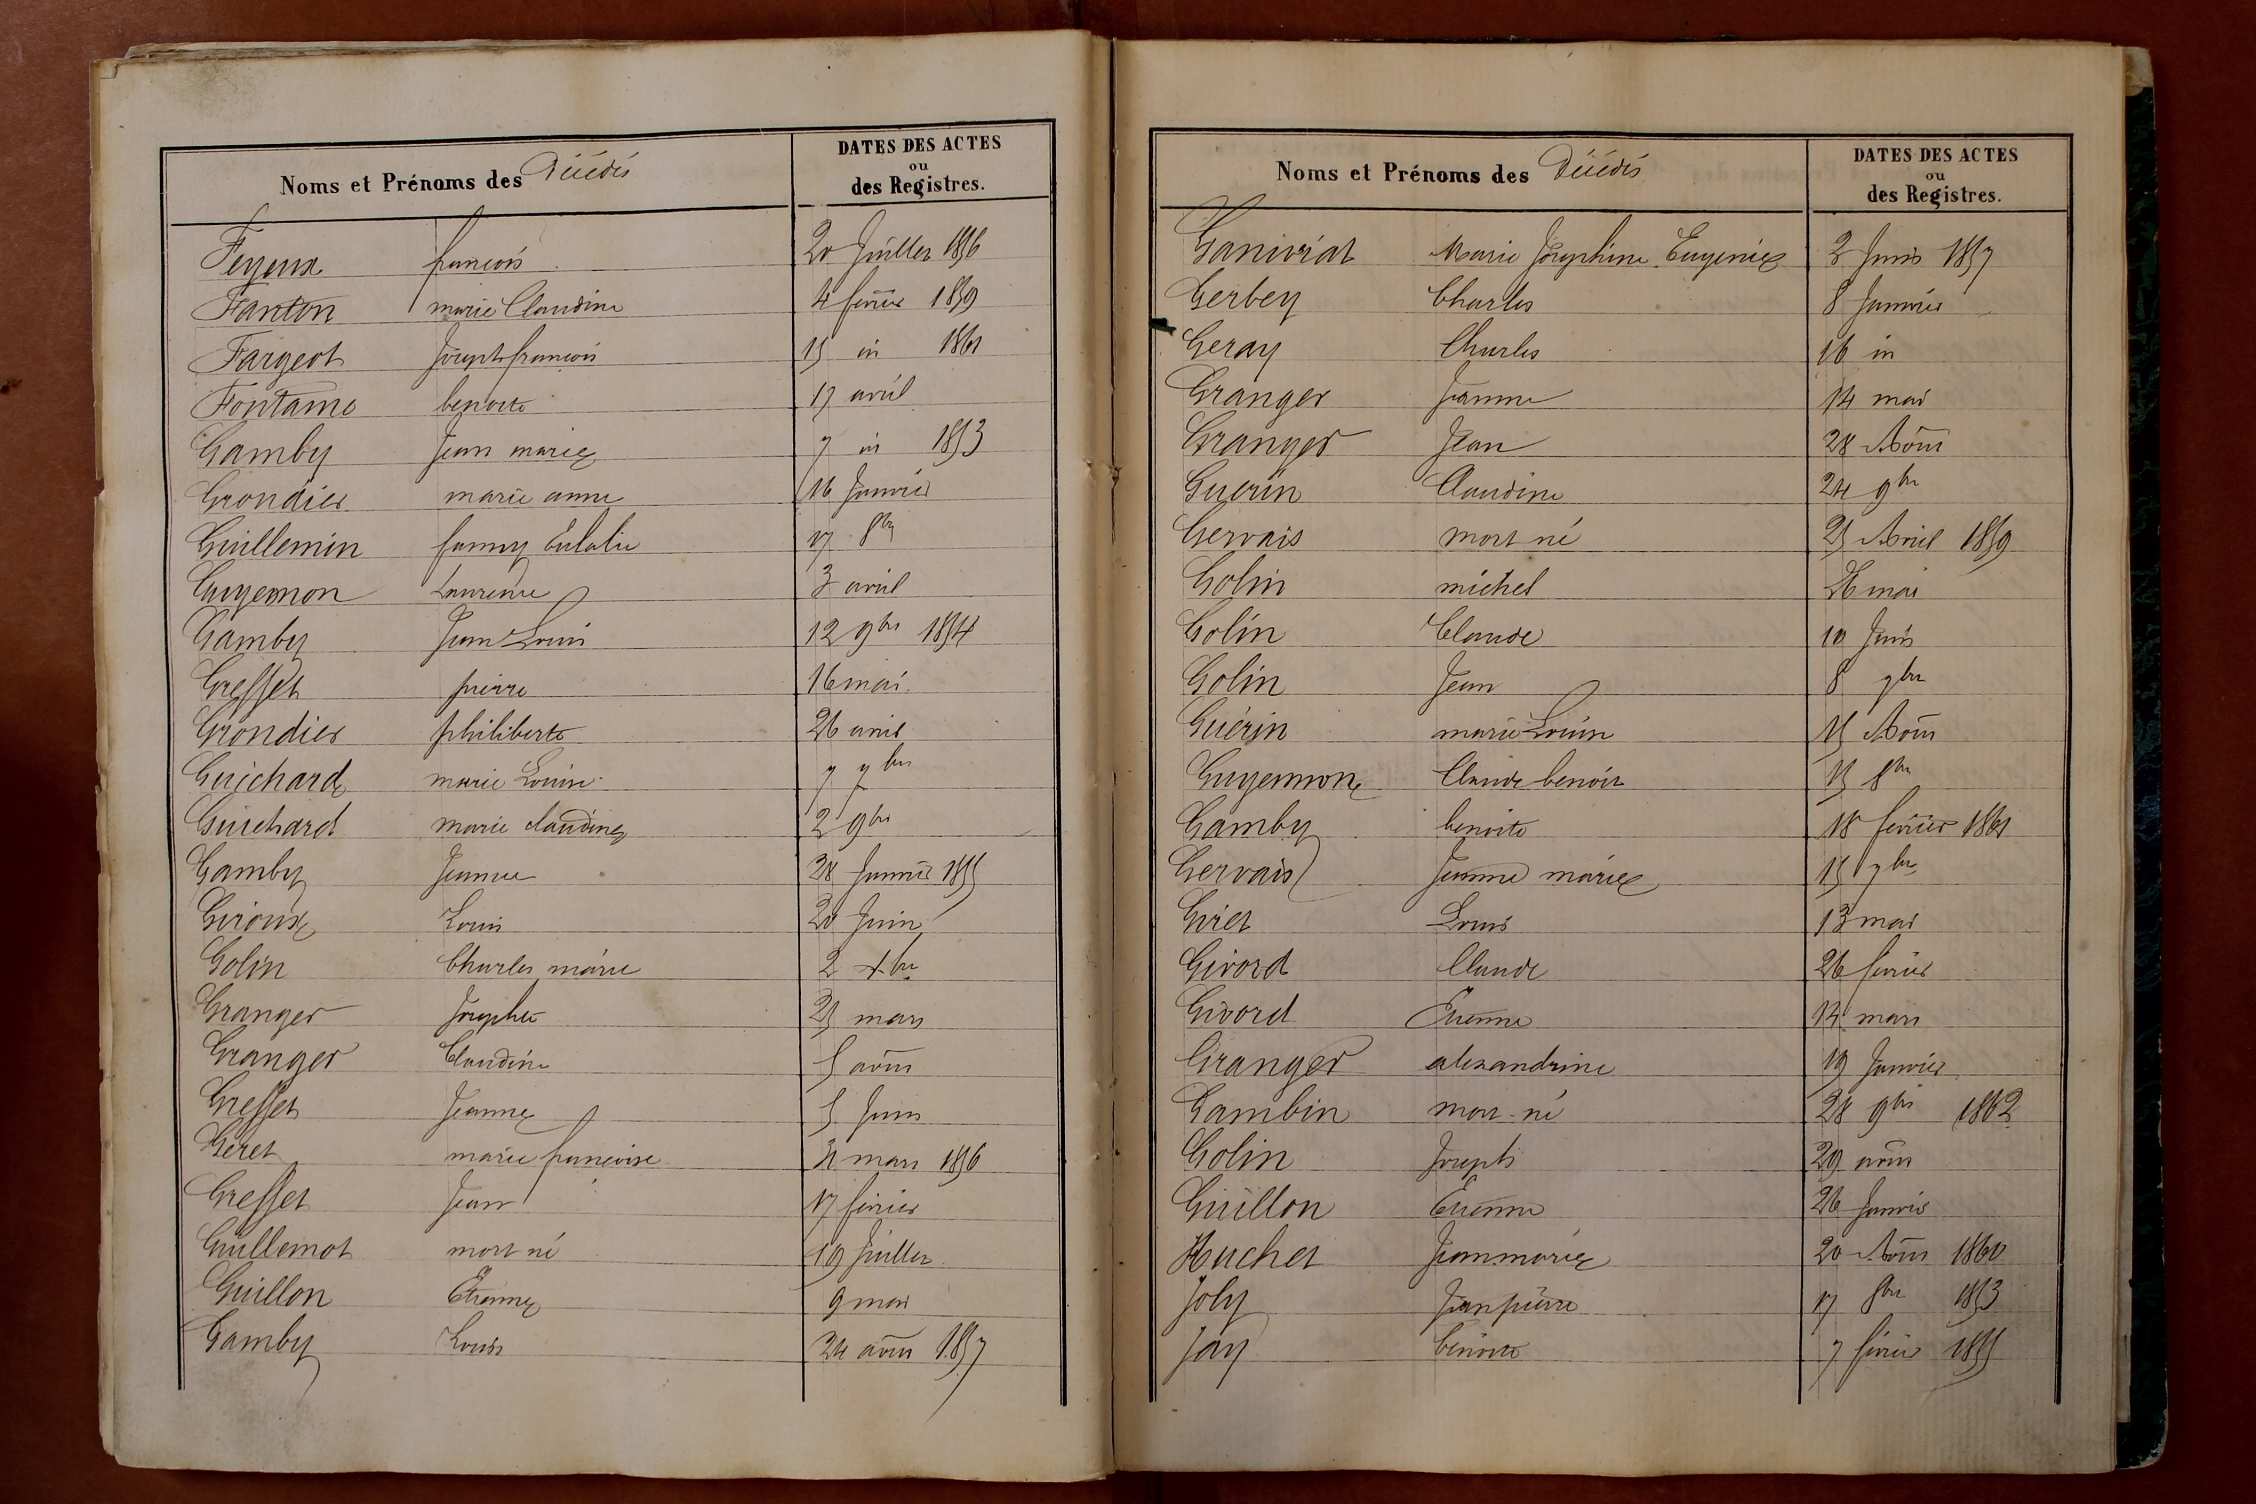 Noms et Prénoms des Décédés
DATES DES ACTES
ou
des Registres.
Feyeux françois 20 Juillet 1856
Fanton marie Claudine 4 février 1859
Fargeot Joseph françois 15 in 1861
Fontaine benoite 17 avril
Gamby Jean marie 7 in 1853
Grondier marie anne 16 Janvier
Guillemin fanny Eulalie 17 8bre
Guyemon Laurence 3 avril
Gamby Jean Louis 12 9bre 1854
Greffet pierre 16 mai
Grondier philiberte 26 avril
Guichard marie Louise 7 7bre
Guichard marie claudine 2 9bre
Gamby Jeanne 28 Janvier 1855
Giroux Louis 20 Juin
Golin Charles marie 2 Xbre
Granger Josephte 25 mars
Granger Claudine 5 août
Greffet Jeanne 5 Juin
Geret marie françoise 31 mars 1856
Greffet Jean 17 février
Guillemot mort né 19 Juillet
Guillon Etienne 9 mai
Gamby Louis 24 août 1857
Noms et Prénoms des Décédés
DATES DES ACTES
ou
des Registres.
Ganivriat Marie Joséphine Eugenie 2 Juin 1857
Gerbey Charles 8 Janvier
Geray Charles 16 in
Granger Jeanne 14 mai
Granger Jean 28 Août
Guerin Claudine 24 9bre
Gervais mort né 25 Avril 1859
Golin michel 26 mai
Golin Claude 10 Juin
Golin Jean 8 7bre
Guérin marie Louise 15 Août
Guyennon Claude benoit 15 8bre
Gamby benoite 18 février 1861
Gervais Jeanne marie 15 7bre
Giret Louis 13 mai
Givord Claude 26 février
Givord Etienne 14 mars
Granger alexandrine 19 Janvier
Gambin mort-né 28 9bre 1862
Golin Joseph 29 août
Guillon Etienne 26 Janvier
Huchet Jean marie 20 Août 1860
Joly Jean pierre 17 8bre 1853
Jay benoite 7 février 1855